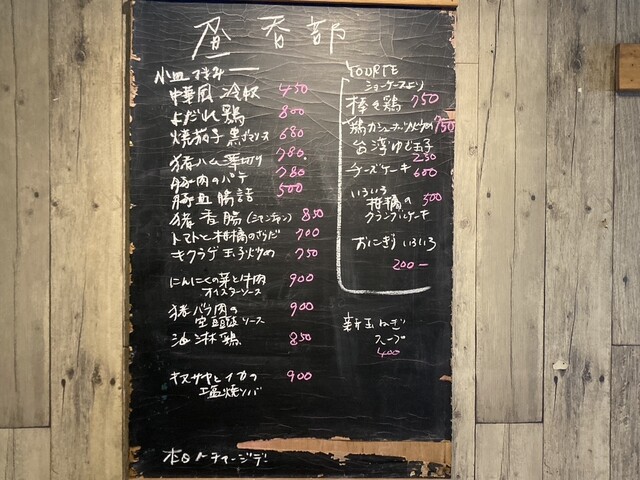 香部
小皿つまみ
中華風冷奴 450
よだれ鶏 800
焼茄子黒ゴマソース 680
猪ハム薄切り 780
豚肉のパテ 780
豚血腸詰 500
猪香腸(シャンチャン) 850
トマトと柑橘のさらだ 700
キクラゲ玉子炒め 750
にんにくの芽と牛肉 900
オイスターソース
猪バラ肉の 900
ソース
油淋鶏 850
キヌサヤとイカの 900
塩焼ソバ
本日ノチャージデ
YOURTE
ショーケースより
棒々鶏 750
鶏カシューナッツ炒め 750
台湾ゆで玉子
250
チーズケーキ 600
いろいろ
柑橘の 500
クランブルケーキ
おにぎりいろいろ
200ー
新玉ねぎ
スープ
400